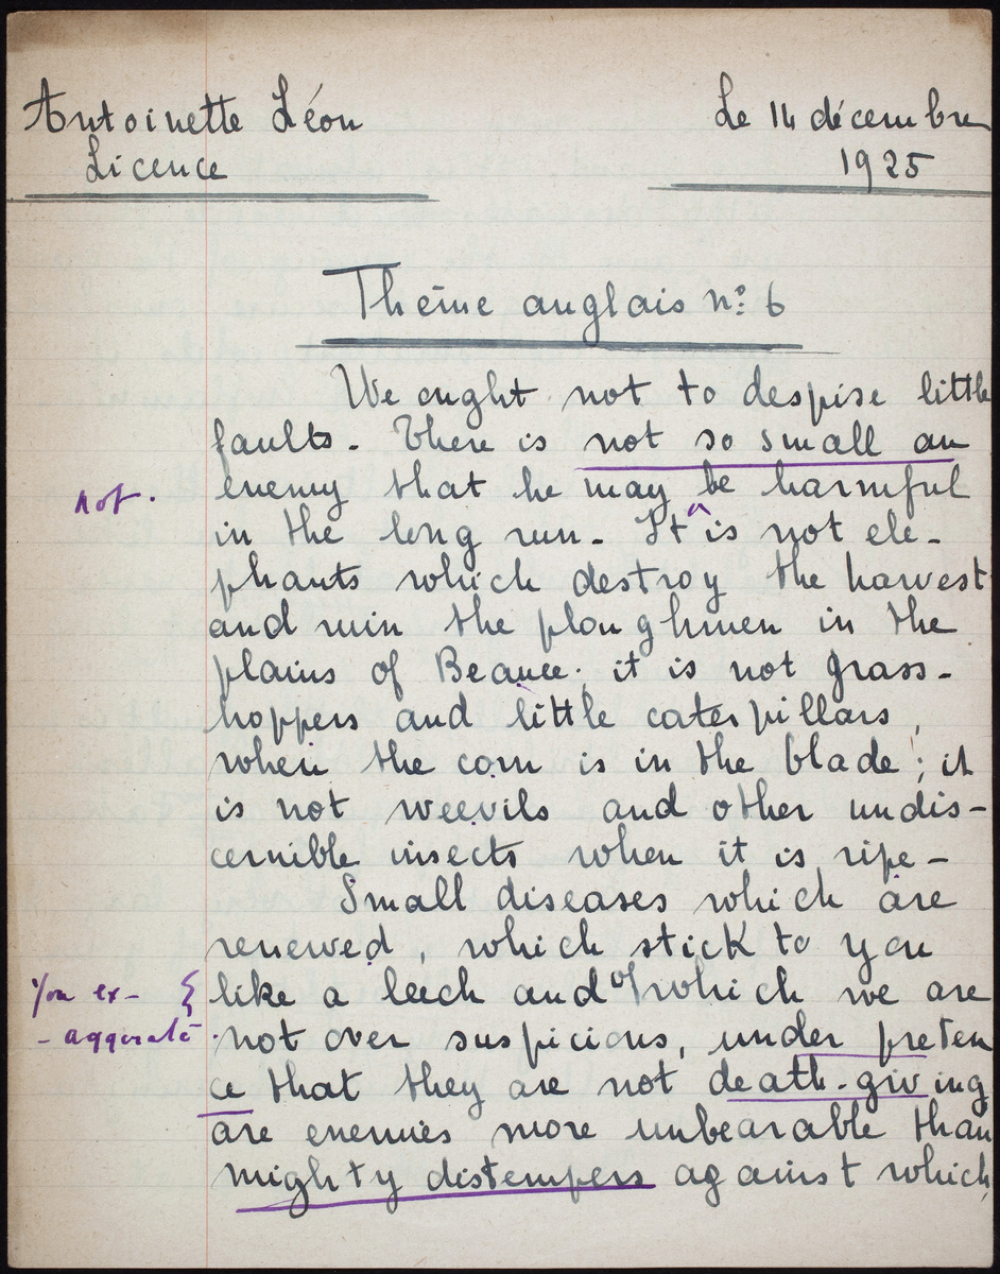 Antoinette Léon
Le 14 décembre
Licence
1925
Thème anglais n: 6
We ought not to despise little
faults. There is not so small an
enemy that he may be harmful
not.
in the long run. It is not ele-
phants which destroy the harvest
and ruin the ploughmen in the
plains of Beauce; it is not grass-
hoppers and little caterpillars,
when the corn is in the blade; it
is not weevils and other undis-
cernible insects when it is ripe-
Small diseases which are
renewed, which stick to you
like a leech and of which we are
You ex-
- aggerate
not over suspicious, under preten
ce that they are not death-giving
are enemies more unbearable than
mighty distempers against which